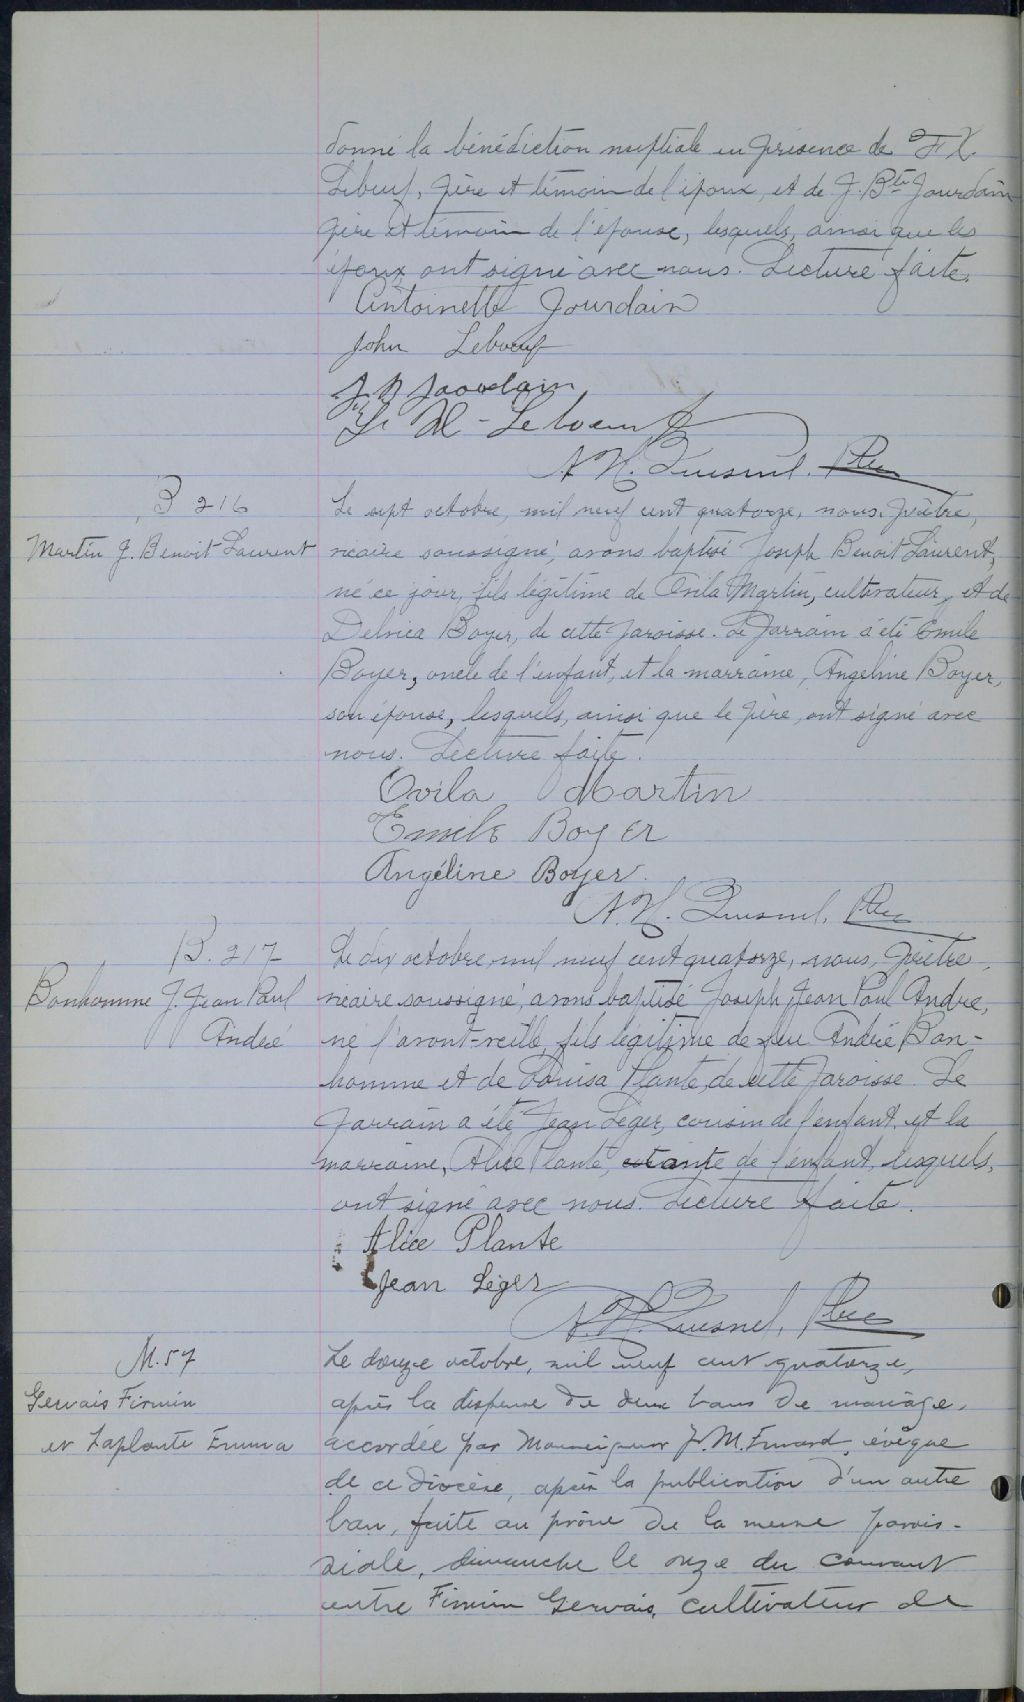 donné la bénédiction nuptiale en présence de F X.
Lebeuf, père et témoin de l'époux, et de J. Bte Jourdain
père et témoin de l'épouse, lesquels, ainsi que les
époux ont signé avec nous. Lecture faite.
Antoinette Jourdain
John Leboeuf
J B Jourdain
F X - Leboeuf
A. H. Quesnel, Ptre
B 216
Martin J. Benoit Laurent
Le sept octobre, mil neuf cent quatorze, nous, prêtre,
vicaire soussigné, avons baptisé Joseph Benoit Laurent,
né ce jour, fils légitime de Ovila Martin, cultivateur, et de
Delvica Boyer, de cette paroisse. Le parrain a été Emile
Boyer, oncle de l'enfant, et la marraine, Angeline Boyer,
son épouse, lesquels, ainsi que le père, ont signé avec
nous. Lecture faite.
Ovila Martin
Emile Boyer
Angéline Boyer.
A. H. Quesnel, Ptre
B. 217
Bonhomme J. Jean Paul
André
Le dix octobre, mil neuf cent quatorze, nous, prêtre,
vicaire soussigné, avons baptisé Joseph Jean Paul André,
né l'avant-veille, fils légitime de feu André Bon-
homme et de Louisa Plante, de cette paroisse. Le
parrain a été Jean Léger, cousin de l'enfant, et la
marraine, Alice Plante, tante de l'enfant, lesquels,
ont signé avec nous. Lecture faite.
Alice Plante
Jean Léger
A. H. Quesnel, Ptre
M. 57
Gervais Firmin
et Laplante Emma
Le douze octobre, mil neuf cent quatorze,
après la dispense de deux bans de mariage,
accordée par Monseigneur J. M. Emard, évêque
de ce diocèse, après la publication d'un autre
ban, faite au prône de la messe parois-
siale, dimanche le onze du courant
entre Firmin Gervais, cultivateur de